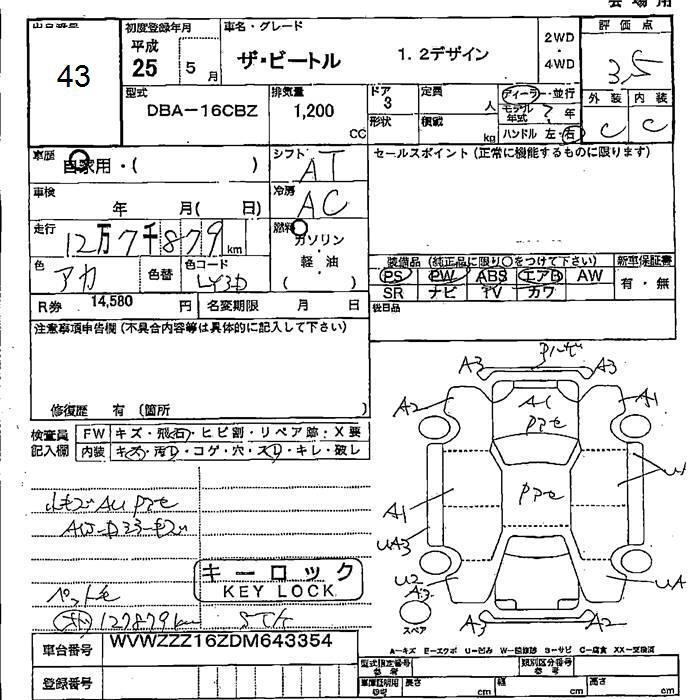 会場用
出品番号
43
初度登録年月
平成
25 5月
車名・グレード
ザ・ビートル 1.2デザイン
2WD
・
4WD
評価点
3.5
外装 内装
C C
型式
DBA-16CBZ
排気量
1,200
CC
ドア
3
形状
定員
人
積載
kg
ディーラー・並行
モデル年式 ? 年
ハンドル 左・右
車歴
自家用・( )
シフト AT
車検
年 月( 日)
冷房 AC
走行
12万7千879km
燃料
ガソリン
・
軽・油
( )
色 アカ 色替 色コード LY3D
R券 14,580 円 名変期限 月 日
セールスポイント(正常に機能するものに限ります)
装備品(純正品に限り○をつけて下さい) 新車保証書
PS PW ABS エアB AW 有・無
SR ナビ TV カワ
後日品
注意事項申告欄(不具合内容等は具体的に記入して下さい)
修復歴 有(箇所 )
検査員記入欄
FW キズ・飛石・ヒビ割・リペア跡・X要
内装 キズ・汚レ・コゲ・穴・スレ・キレ・破レ
キーロック
KEY LOCK
127879km
車台番号 WVWZZZ16ZDM643354
登録番号
A3 A3
A2 A1 A1
A1
UA3
U2
A3
UA
スペア
A3 A2
A-キズ E-エクボ U-凹み W-補修跡 S-サビ C-腐食 XX-交換済
型式指定番号 参考
類別区分番号 参考
車庫証明用 参考 長さ cm 幅 cm 高さ cm